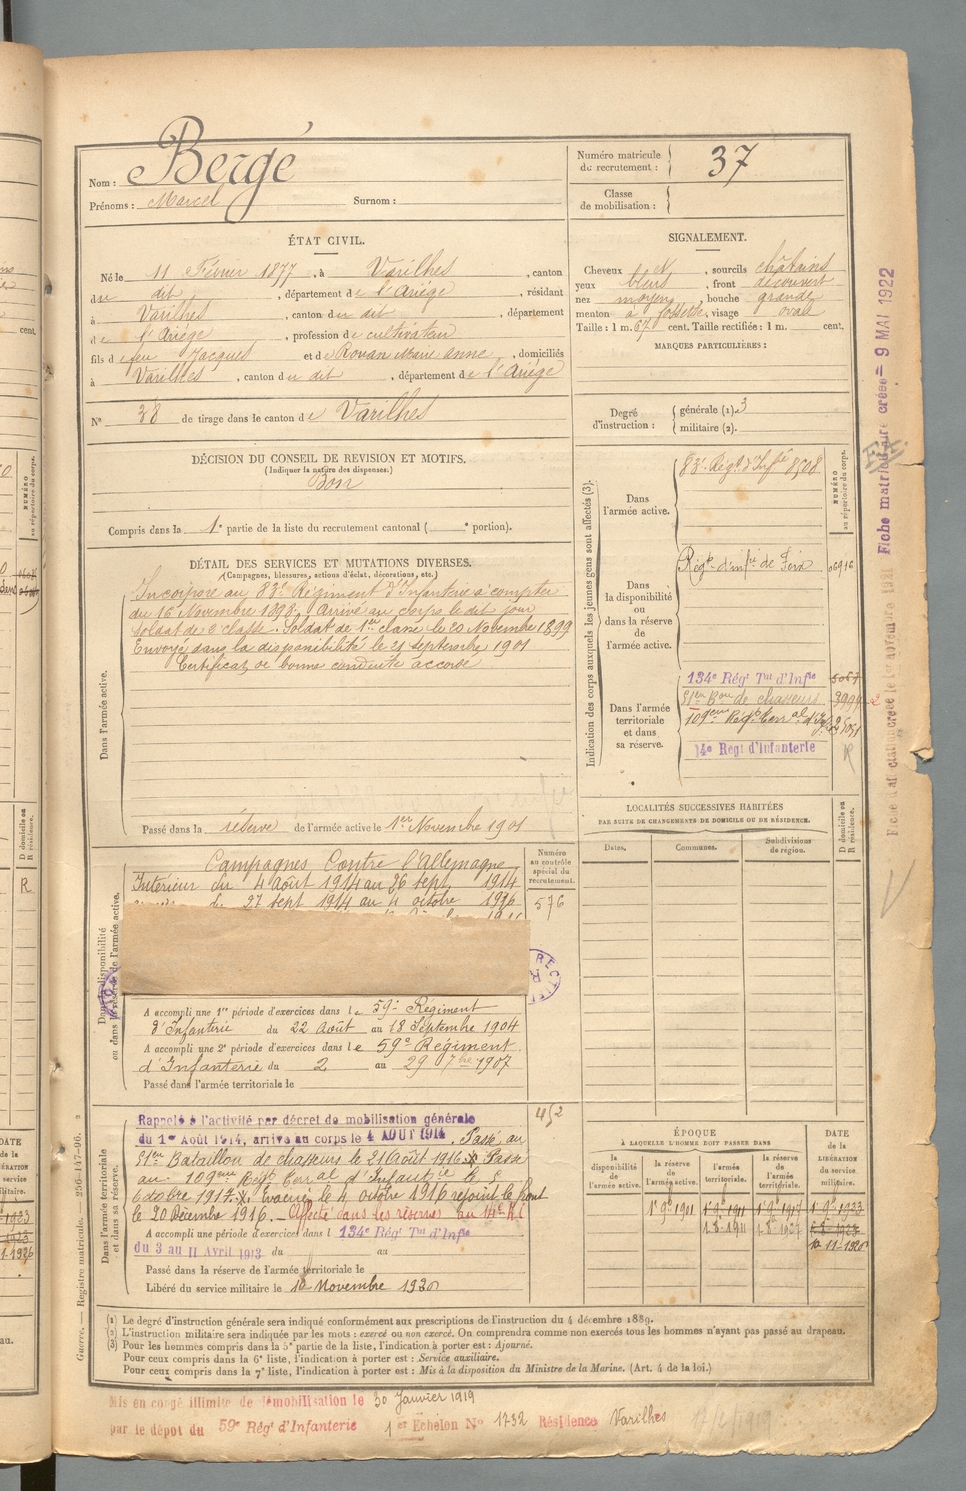 Nom : Bergé
Prénoms : Marcel Surnom :
Numéro matricule du recrutement : 37
Classe de mobilisation :
ÉTAT CIVIL.
Né le 11 Février 1877, à Varilhes, canton
du dit, département de l'Ariége, résidant
à Varilhes, canton du dit, département
de l'Ariége, profession de cultivateur
fils de feu Jacques et de Rouan Marie Anne, domiciliés
à Varilhes, canton du dit, département de l'Ariége
N° 38 de tirage dans le canton de Varilhes
SIGNALEMENT.
Cheveux et, sourcils châtains
yeux bleus, front découvert
nez moyen, bouche grande
menton à fossette, visage oval
Taille : 1 m. 67 cent. Taille rectifiée : 1 m. cent.
MARQUES PARTICULIÈRES :
Degré d'instruction : générale (1). 3
militaire (2).
DÉCISION DU CONSEIL DE REVISION ET MOTIFS.
(Indiquer la nature des dispenses.)
Bon
Compris dans la 1e partie de la liste du recrutement cantonal ( e portion).
DÉTAIL DES SERVICES ET MUTATIONS DIVERSES.
(Campagnes, blessures, actions d'éclat, décorations, etc.)
Dans l'armée active.
Incorporé au 83e Régiment d'Infanterie à compter
du 16 Novembre 1898. Arrivé au corps le dit jour
soldat de 2e classe. Soldat de 1ere classe le 20 Novembre 1899
Envoyé dans la disponibilité le 21 septembre 1901
Certificat de bonne conduite accordé
Passé dans la réserve de l'armée active le 1er Novembre 1901
Indication des corps auxquels les jeunes gens sont affectés (3).
NUMÉRO au répertoire du corps.
Dans l'armée active.
83e Régt d'Infie 8508
Dans la disponibilité ou dans la réserve de l'armée active.
Régt d'infie de Foix 06916
Dans l'armée territoriale et dans sa réserve.
134e Régt Tal d'Infie
51eme Bon de chasseurs 3999
109eme Régt Terral d'Inf.
14e Regt d'Infanterie
R
LOCALITÉS SUCCESSIVES HABITÉES
PAR SUITE DE CHANGEMENTS DE DOMICILE OU DE RÉSIDENCE.
Dates. Communes. Subdivisions de région. D domicile ou R résidence.
Dans la disponibilité ou dans la réserve de l'armée active.
Numéro au contrôle spécial du recrutement.
576
Campagnes Contre l'Allemagne
Intérieur du 4 Août 1914 au 26 sept 1914
du 27 sept 1914 au 4 octobre 1916
A accompli une 1re période d'exercices dans le 59e Régiment
d'Infanterie du 22 août au 18 Septembre 1904
A accompli une 2e période d'exercices dans le 59e Régiment
d'Infanterie du 2 au 29 7bre 1907
Passé dans l'armée territoriale le
452
Dans l'armée territoriale et dans sa réserve.
Rappelé à l'activité par décret de mobilisation générale
du 1er Août 1914, arrivé au corps le 4 AOUT 1914. Passé au
51eme Bataillon de chasseurs le 21 Août 1916. Passé
au 109eme Regt Terral d'Infanterie le 5
Octobre 1917. Evacué le 4 octobre 1916 rejoint le front
le 20 Décembre 1916. — Affecté dans les réserves au 14e R.I
A accompli une période d'exercices dans l 134e Régt Tal d'Infie
du 3 au 11 Avril 1913 du au
Passé dans la réserve de l'armée territoriale le
Libéré du service militaire le 10 Novembre 1926
ÉPOQUE
À LAQUELLE L'HOMME DOIT PASSER DANS
la disponibilité de l'armée active. la réserve de l'armée active. l'armée territoriale. la réserve de l'armée territoriale. DATE de la LIBÉRATION du service militaire.
1er 9bre 1911 1er 9bre 1911 1er 9bre 1917 1er 9bre 1923
10 11-1926
(1) Le degré d'instruction générale sera indiqué conformément aux prescriptions de l'instruction du 4 décembre 1889.
(2) L'instruction militaire sera indiquée par les mots : exercé ou non exercé. On comprendra comme non exercés tous les hommes n'ayant pas passé au drapeau.
(3) Pour les hommes compris dans la 5e partie de la liste, l'indication à porter est : Ajourné.
Pour ceux compris dans la 6e liste, l'indication à porter est : Service auxiliaire.
Pour ceux compris dans la 7e liste, l'indication à porter est : Mis à la disposition du Ministre de la Marine. (Art. 4 de la loi.)
Mis en congé illimité de démobilisation le 30 Janvier 1919
par le dépot du 59e Rég d'Infanterie 1er Echelon N° 1732 Résidence Varilhes 17/2/1919
Guerre. — Registre matricule. — 256-147-96.
Fiche matriculaire créée = 9 MAI 1922